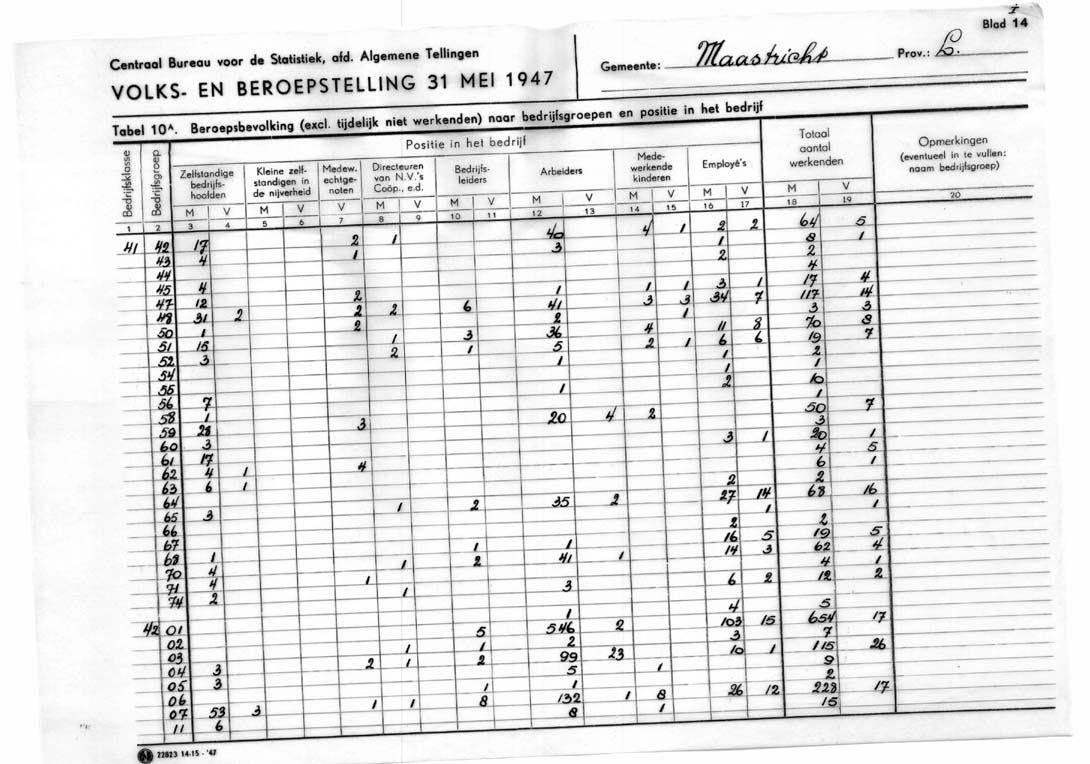 I
Blad 14
Centraal Bureau voor de Statistiek, afd. Algemene Tellingen
Gemeente: Maastricht Prov.: L.
VOLKS- EN BEROEPSTELLING 31 MEI 1947
Tabel 10A. Beroepsbevolking (excl. tijdelijk niet werkenden) naar bedrijfsgroepen en positie in het bedrijf
Bedrijfsklasse Bedrijfsgroep Positie in het bedrijf Totaal aantal werkenden Opmerkingen (eventueel in te vullen: naam bedrijfsgroep)
Zelfstandige bedrijfs-hoofden Kleine zelf-standigen in de nijverheid Medew. echtge-noten Directeuren van N.V.'s Coöp., e.d. Bedrijfs-leiders Arbeiders Mede-werkende kinderen Employé's
M V M V V M V M V M V M V M V M V
1 2 3 4 5 6 7 8 9 10 11 12 13 14 15 16 17 18 19 20
41 42 17 2 1 40 4 1 2 2 64 5
43 4 1 3 1 8 1
44 2 2
45 4 4
47 12 2 1 1 1 3 1 17 4
48 31 2 2 2 6 41 3 3 34 7 117 14
50 1 2 2 1 3 3
51 15 1 3 36 4 11 8 70 8
52 3 2 1 5 2 1 6 6 19 7
54 1 1 2
55 1 1
56 7 1 2 10
58 1 1
59 28 3 20 4 2 50 7
60 3 3
61 17 3 1 20 1
62 4 1 4 4 5
63 6 1 6 1
64 2 2
65 3 1 2 35 2 27 14 68 16
66 1 1
67 2 2
68 1 1 1 16 5 19 5
70 4 1 2 41 1 14 3 62 4
71 4 1 4 1
74 2 1 3 6 2 12 2
42 01 1 4 5
02 5 546 2 103 15 654 17
03 1 1 2 3 7
04 3 2 1 2 99 23 10 1 115 26
05 3 5 1 9
06 1 1 2
07 53 3 1 1 8 132 1 8 26 12 228 17
11 6 8 1 15
22823 14-15 - '47